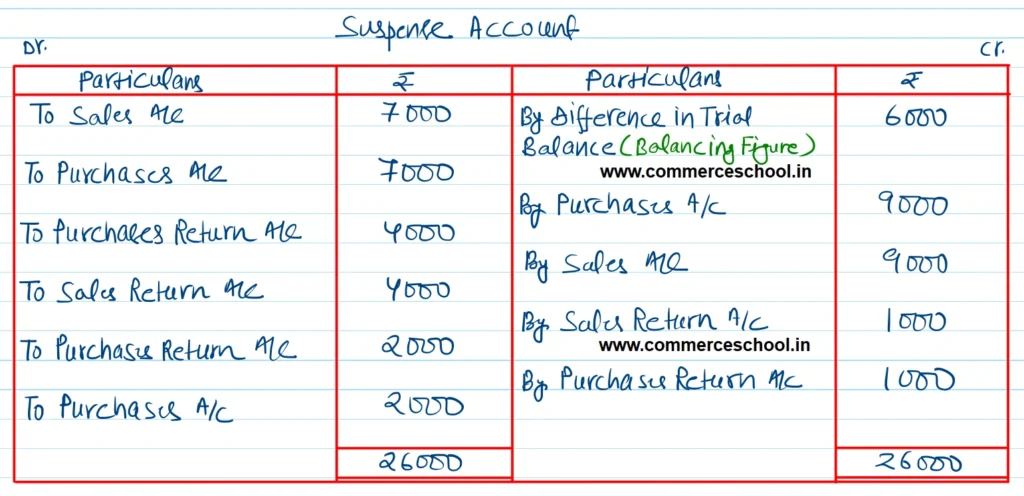 Suspense Account
Dr.
Cr.
Particulars ₹ Particulars ₹
To Sales A/c 7000 By Difference in Trial 6000
Balance (Balancing Figure)
www.commerceschool.in
To Purchases A/c 7000
By Purchases A/c 9000
To Purchases Return A/c 4000
By Sales A/c 9000
To Sales Return A/c 4000
By Sales Return A/c 1000
www.commerceschool.in
To Purchases Return A/c 2000
By Purchases Return A/c 1000
To Purchases A/c 2000
26000 26000